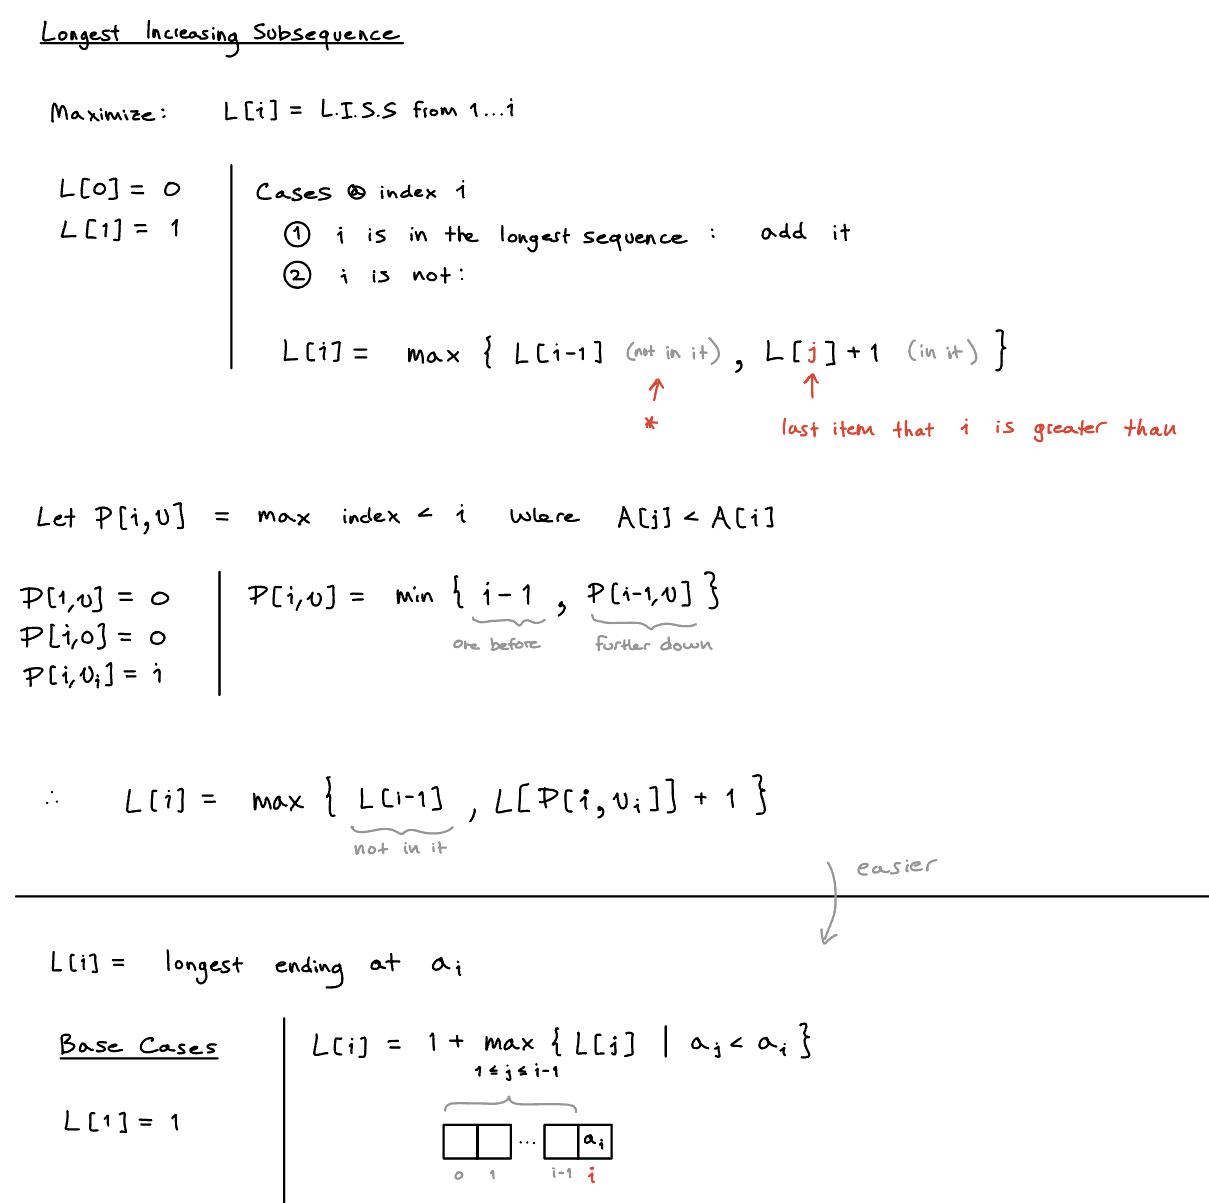 Longest Increasing Subsequence
Maximize: L[i] = L.I.S.S from 1...i
L[0] = 0
L[1] = 1
Cases @ index i
① i is in the longest sequence : add it
② i is not:
L[i] = max { L[i-1] (not in it) , L[j]+1 (in it) }
*
last item that i is greater than
Let P[i,v] = max index < i where A[j] < A[i]
P[1,v] = 0
P[i,0] = 0
P[i,vᵢ] = i
P[i,v] = min { i-1 , P[i-1,v] }
one before further down
∴ L[i] = max { L[i-1] , L[P[i,vᵢ]] + 1 }
not in it
easier
L[i] = longest ending at aᵢ
Base Cases
L[1] = 1
L[i] = 1 + max { L[j] | aⱼ < aᵢ }
1 ≤ j ≤ i-1
... aᵢ
0 1 i-1 i